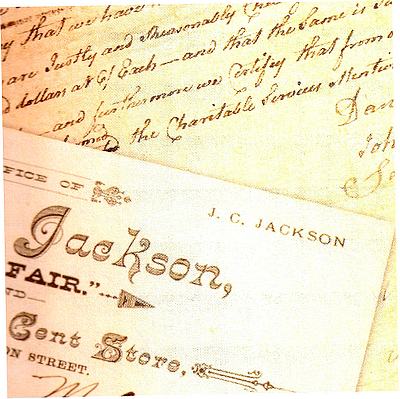 that we have
are Justly and Reasonably
dollars at 6/ Each — and that the Same is
and furthermore we Certify that from
the Charitable Services
Dan
Joh
FFICE OF
J. C. JACKSON
Jackson,
FAIR."
ND
Cent Store,
ON STREET.